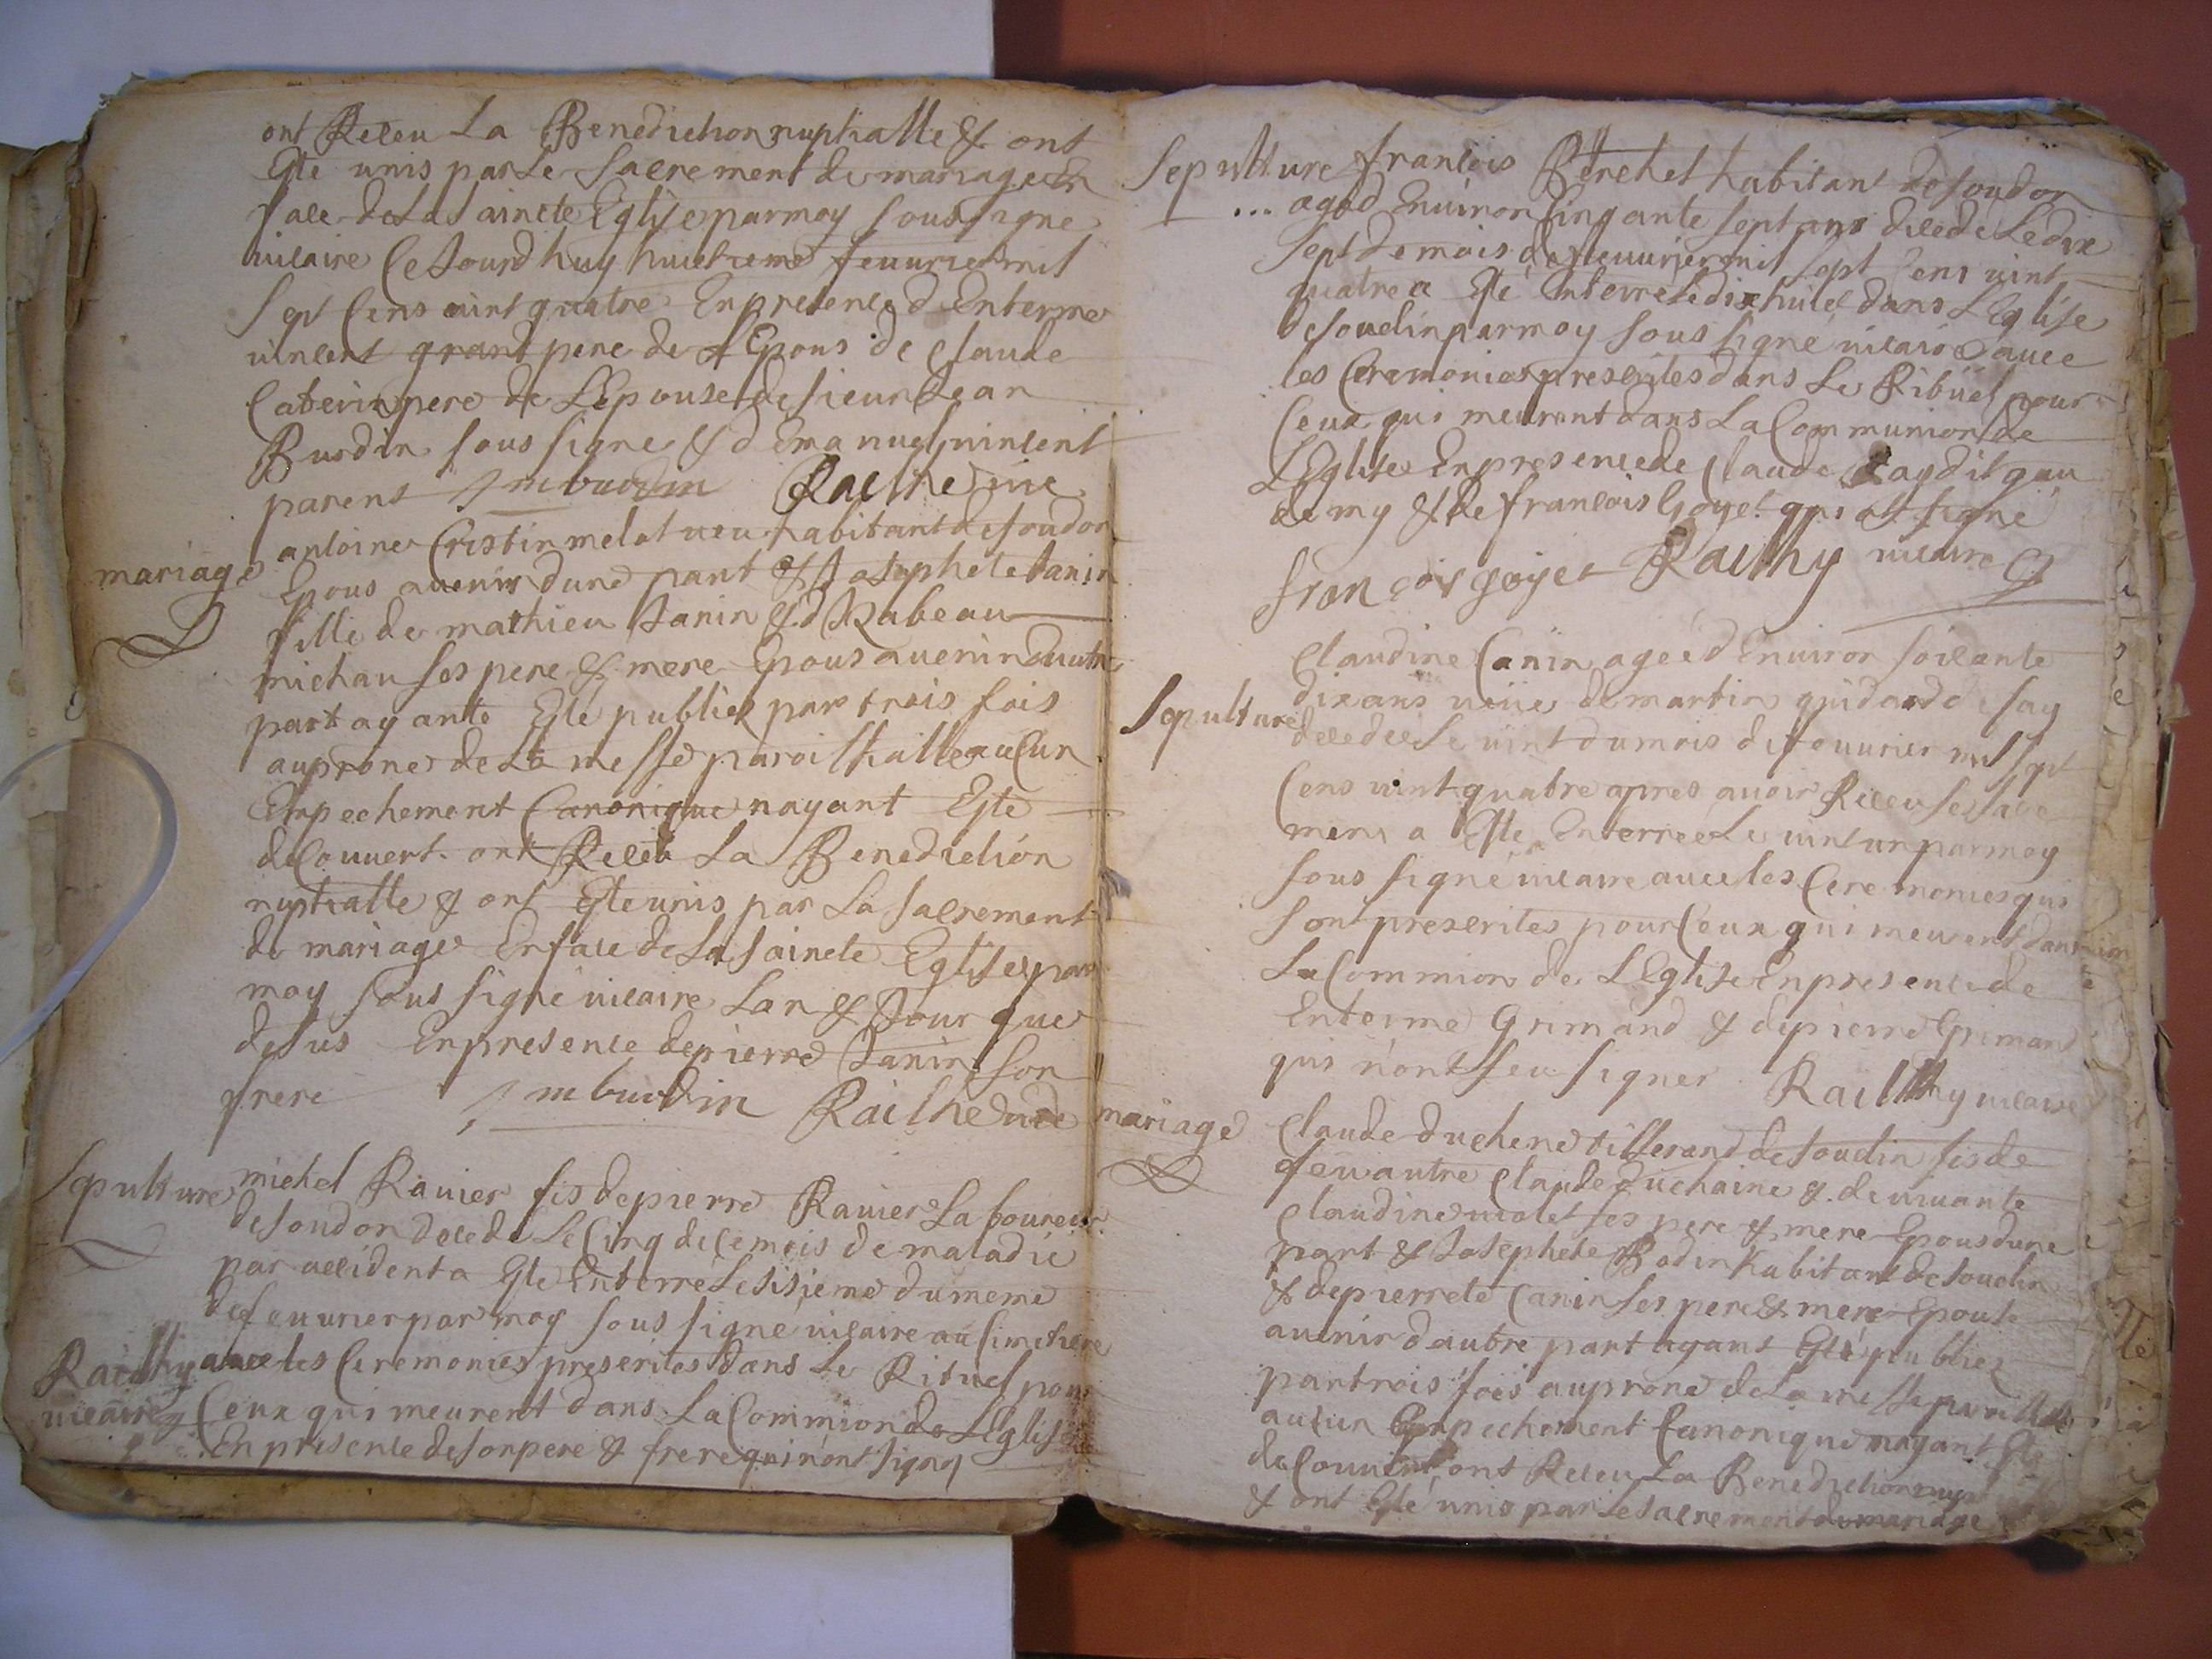 ont Receu La Benediction nuptialle & ont
Esté unis par Le Sacrement de mariage En
face de La Saincte Eglise par moy sous signe
vicaire ce Jourd huy huictieme feuurier mil
sept Cens vint quatre En presence d Enterme
vincent grant pere de L Epous de Claude
Caterin pere de L Epouse de sieur Jean
Burdin sous signe & d Emanuel vincent
parens J m burdin Railhe vic
mariage
antoine Cristin melot veu habitant de soudon
Epous auenir dune part & Josephete Janin
fille de mathieu Janin & d Isabeau
michau ses pere & mere Epous auenir dautre
part ayants Esté publiez par trois fois
au prone de La messe paroissialle aucun
Empechement Canonique nayant Esté
decouuert ont Receu La Benediction
nuptialle & ont Esté unis par La sacrement
de mariage En face de La saincte Eglise par
moy sous signé vicaire Lan & Jour que
desus En presence de pierre Janin son
frere J m burdin Railhe vic
Sepulture
michel Rauier fis de pierre Rauier Laboureur
de soudon decedé Le Cinq de ce mois de maladie
par accident a Esté Enterré Le sisieme du meme
de feuurier par moy sous signé vicaire au simetiere
auec les Ceremonies prescrites dans Le Rituel pour
Ceux qui meurent dans La Commion de L Eglise
En presence de son pere & frere qui n'ont signé
Railhy
vicaire
Sepulture
francois habitant de soudon
... agé d Enuiron Cinqante sept ans decedé Le dix
sept de mois de feuurier mil sept Cens vint
quatre a Esté Enterré Le dix huict dans L Eglise
de souclin par moy sous signé vicaire auec
les Ceremonies prescrites dans Le Rituel pour
Ceux qui meurent dans La Communion de
L Eglise En presence de Claude dit gau
de my & de francois Goyet qui a signé
francois goyet Railhy vicaire
Sepulture
Claudine Canin ageé d Enuiron soicante
dix ans veüe de martin de say
decedeé Le vint du mois de feuurier mil sept
Cens vint quatre apres auoir Receu ses sacre
mens a Esté Enterreé Le vint un par moy
sous signé vicaire auec les Ceremonies qui
sont prescrites pour Ceux qui meurent dans
La Commion de L Eglise En presence de
Enterme Grimand & de pierre Grimand
qui n'ont seu signer Railhy vicaire
mariage
Claude duchene tisserand de souclin fis de
feu autre Claude duchaine & de viuante
Claudine violet ses pere & mere Epous dune
part & Josephete Bodin habitant de souclin
& de pierrete Canin ses pere & mere Epouse
auenir dautre part ayant Esté publiez
par trois fois au prone de La messe paroissialle
aucun Empechement Canonique nayant Esté
decouuert ont Receu La Benediction nup
& ont Esté unis par Le sacrement de mariage